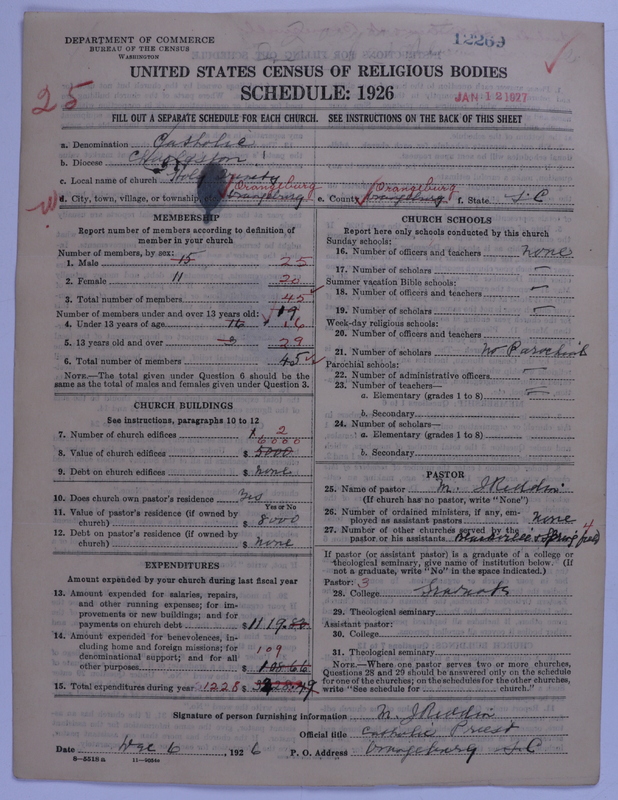 DEPARTMENT OF COMMERCE
BUREAU OF THE CENSUS
WASHINGTON
12269
UNITED STATES CENSUS OF RELIGIOUS BODIES
SCHEDULE: 1926
JAN 12 1927
25
FILL OUT A SEPARATE SCHEDULE FOR EACH CHURCH. SEE INSTRUCTIONS ON THE BACK OF THIS SHEET
a. Denomination Catholic
b. Diocese Charleston
c. Local name of church Holy Trinity
d. City, town, village, or township Orangeburg Orangeburg e. County Orangeburg Orangeburg f. State S-C
MEMBERSHIP
Report number of members according to definition of
member in your church
Number of members, by sex:
1. Male 15 25
2. Female 11 20
3. Total number of members 45
Number of members under and over 13 years old: 19
4. Under 13 years of age 16 16
5. 13 years old and over 29
6. Total number of members 45
NOTE.—The total given under Question 6 should be the
same as the total of males and females given under Question 3.
CHURCH BUILDINGS
See instructions, paragraphs 10 to 12
7. Number of church edifices 2
8. Value of church edifices $ 5000 6000
9. Debt on church edifices $ None
10. Does church own pastor's residence Yes
Yes or No
11. Value of pastor's residence (if owned by
church) $ 8000
12. Debt on pastor's residence (if owned by
church) $ none
EXPENDITURES
Amount expended by your church during last fiscal year
13. Amount expended for salaries, repairs,
and other running expenses; for im-
provements or new buildings; and for
payments on church debt $ 1119.83
14. Amount expended for benevolences, in-
cluding home and foreign missions; for
denominational support; and for all
other purposes $ 109
15. Total expenditures during year 1228 $
CHURCH SCHOOLS
Report here only schools conducted by this church
Sunday schools:
16. Number of officers and teachers none
17. Number of scholars —
Summer vacation Bible schools:
18. Number of officers and teachers —
19. Number of scholars —
Week-day religious schools:
20. Number of officers and teachers
21. Number of scholars No Parochial
Parochial schools:
22. Number of administrative officers —
23. Number of teachers—
a. Elementary (grades 1 to 8) —
b. Secondary
24. Number of scholars—
a. Elementary (grades 1 to 8)
b. Secondary
PASTOR
25. Name of pastor M. J Reddin
(If church has no pastor, write "None")
26. Number of ordained ministers, if any, em-
ployed as assistant pastors none
27. Number of other churches served by the
pastor or his assistants Blackville & Springfield 4
If pastor (or assistant pastor) is a graduate of a college or
theological seminary, give name of institution below. (If
not a graduate, write "No" in the space indicated.)
Pastor: 3
28. College Graduate
29. Theological seminary
Assistant pastor:
30. College
31. Theological seminary
NOTE.—Where one pastor serves two or more churches,
Questions 28 and 29 should be answered only on the schedule
for one of the churches; on the schedules for the other churches,
write "See schedule for church."
Signature of person furnishing information M. J Reddin
Official title Catholic Priest
Date Dec 6, 1926 P. O. Address Orangeburg S-C
8—5518a 11—9054a